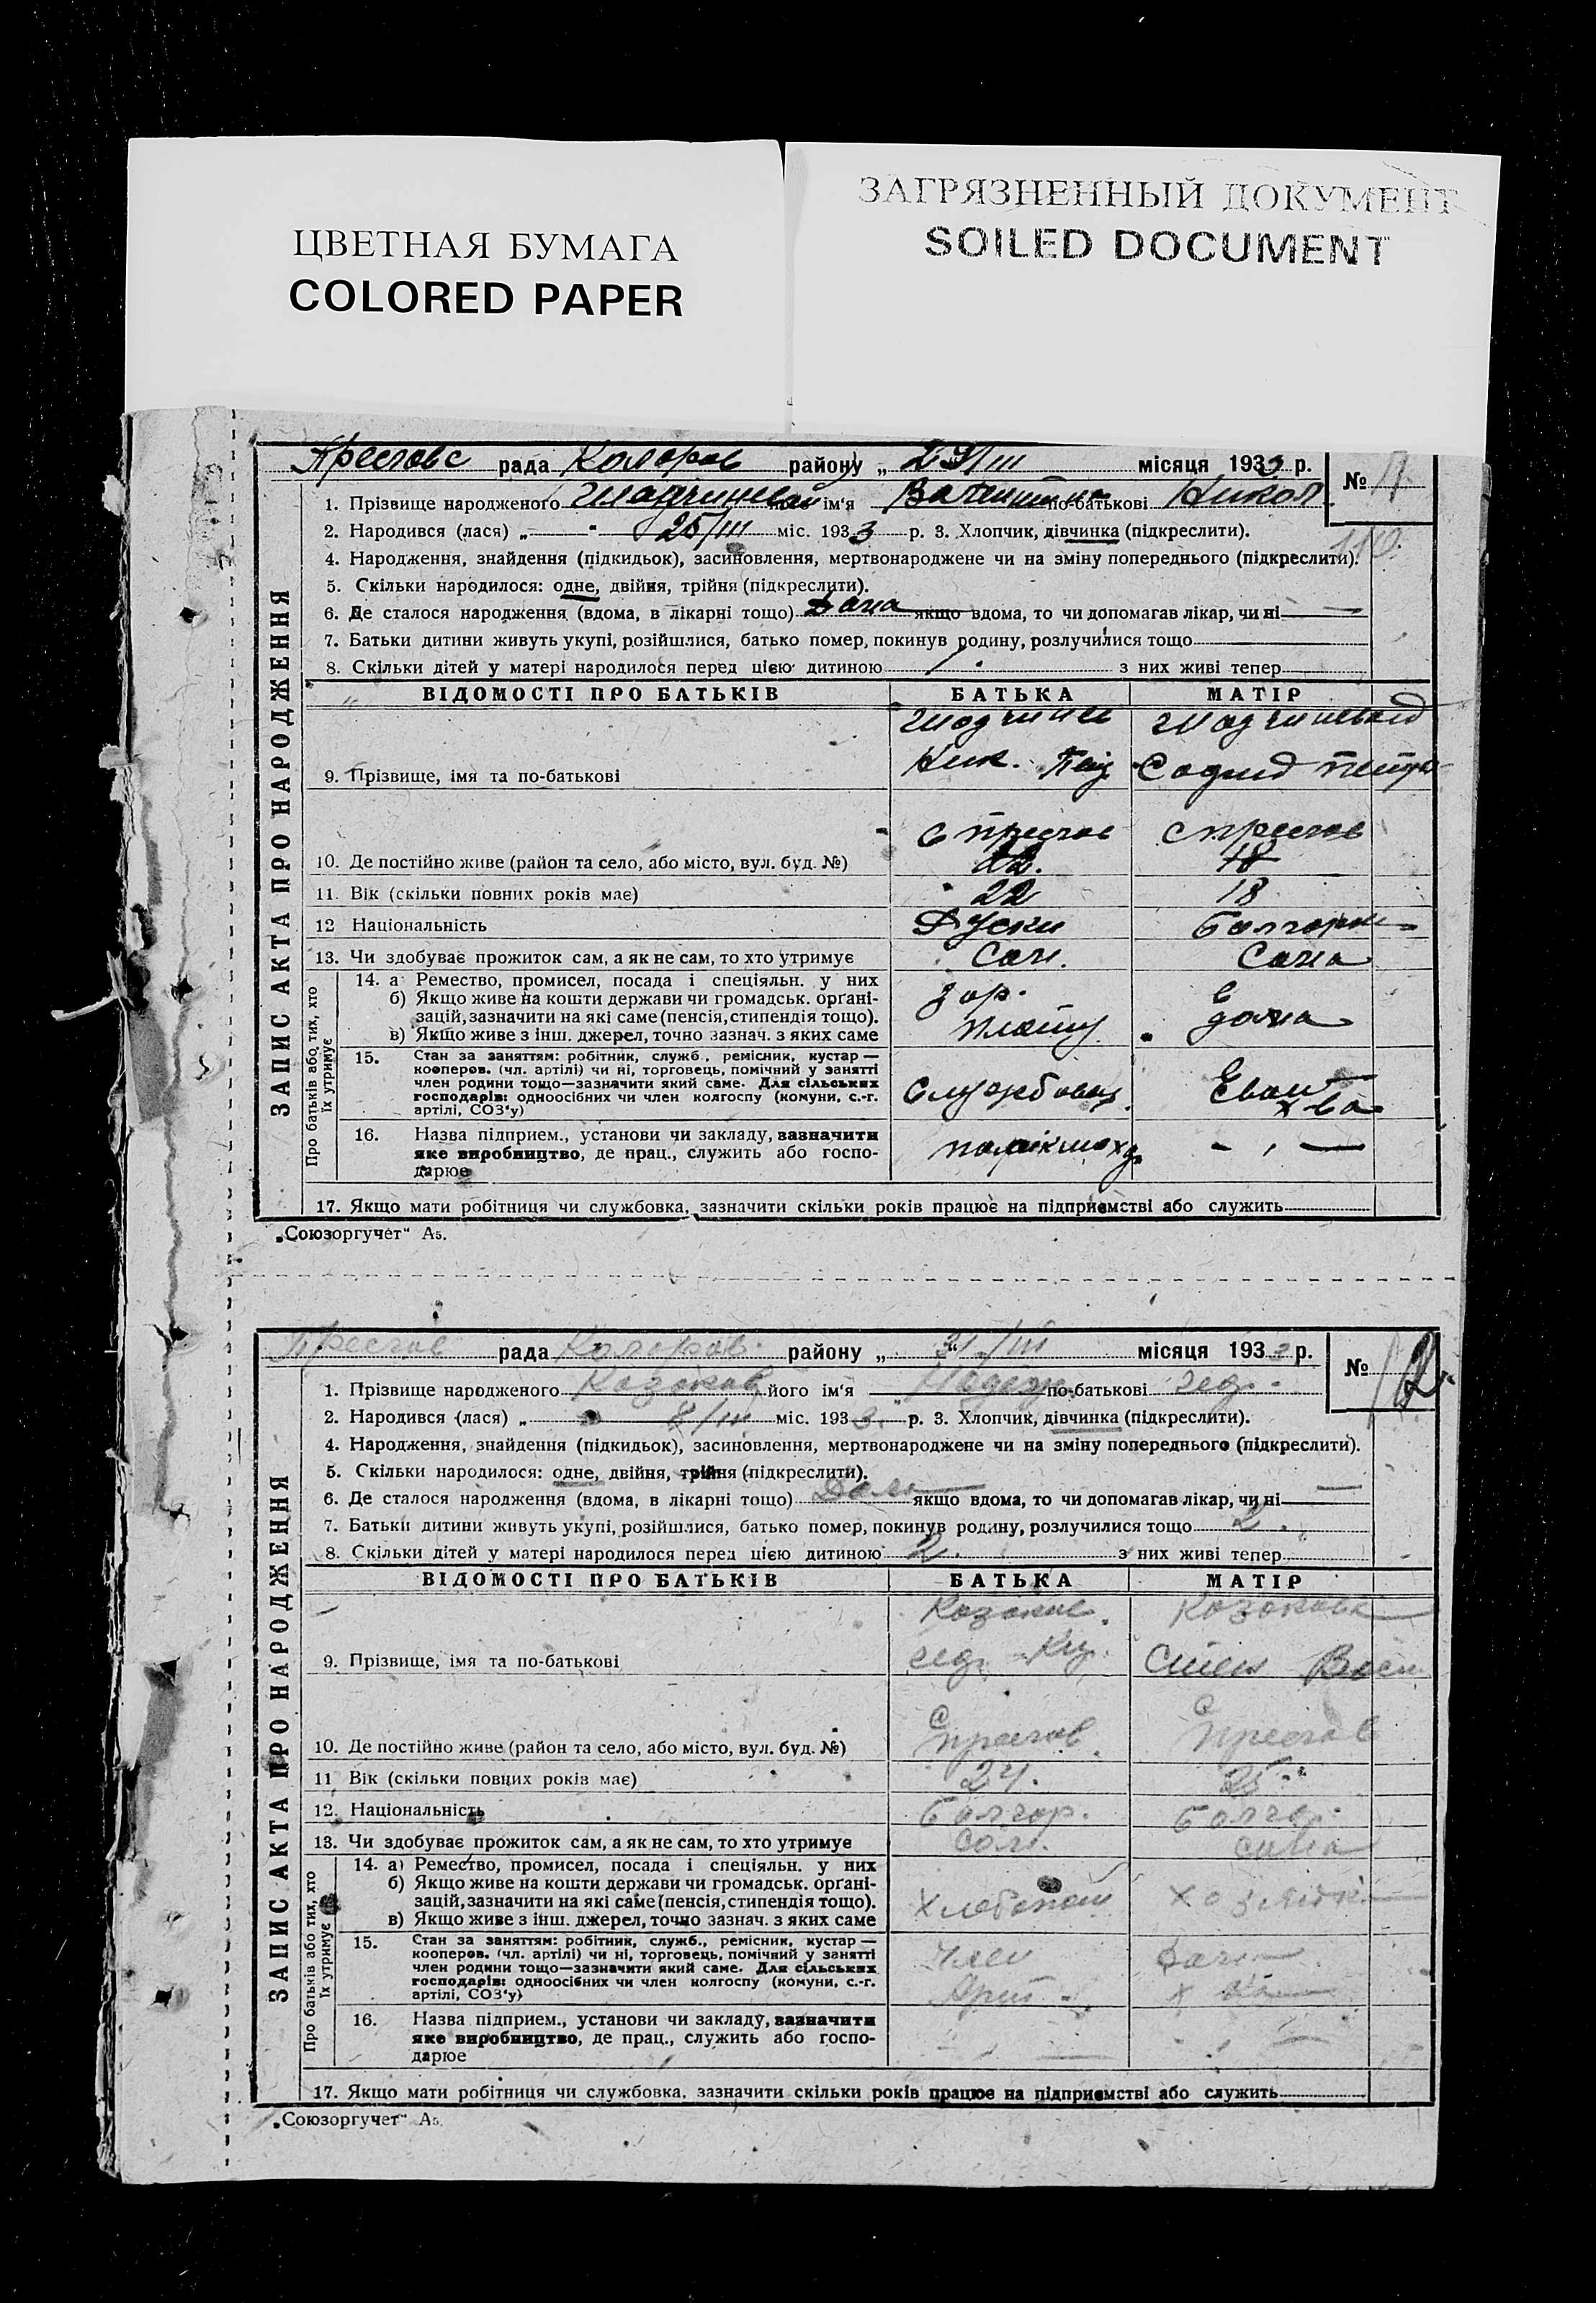 ЦВЕТНАЯ БУМАГА
COLORED PAPER
ЗАГРЯЗНЕННЫЙ ДОКУМЕНТ
SOILED DOCUMENT
ЗАПИС АКТА ПРО НАРОДЖЕННЯ
рада Коларов району „ 29/III місяця 1933 р. №
1. Прізвище народженого його ім'я по-батькові Никол
2. Народився (лася) „ " 25/III міс. 1933 р. 3. Хлопчик, дівчинка (підкреслити).
4. Народження, знайдення (підкидьок), засиновлення, мертвонароджене чи на зміну попереднього (підкреслити).
5. Скільки народилося: одне, двійня, трійня (підкреслити).
6. Де сталося народження (вдома, в лікарні тощо) Дома якщо вдома, то чи допомагав лікар, чи ні —
7. Батьки дитини живуть укупі, розійшлися, батько помер, покинув родину, розлучилися тощо
8. Скільки дітей у матері народилося перед цією дитиною з них живі тепер
ВІДОМОСТІ ПРО БАТЬКІВ БАТЬКА МАТІР
9. Прізвище, імя та по-батькові Ник.
10. Де постійно живе (район та село, або місто, вул. буд. №) 22. 18
11. Вік (скільки повних років має) 22 18
12 Національність
13. Чи здобуває прожиток сам, а як не сам, то хто утримує Сам. Сама
Про батьків або тих, хто їх утримує
14. а Ремество, промисел, посада і спеціяльн. у них
б) Якщо живе на кошти держави чи громадськ. органі-
зацій, зазначити на які саме (пенсія, стипендія тощо).
в) Якщо живе з інш. джерел, точно зазнач. з яких саме
дома
15. Стан за заняттям: робітник, служб., ремісник, кустар —
кооперов. (чл. артілі) чи ні, торговець, помічний у занятті
член родини тощо—зазначити який саме. Для сільських
господарів: одноосібних чи член колгоспу (комуни, с.-г.
артілі, СОЗ'у)
Службовец
16. Назва підприєм., установи чи закладу, зазначити
яке виробництво, де прац., служить або госпо-
дарює
17. Якщо мати робітниця чи службовка, зазначити скільки років працює на підприємстві або служить
„Союзоргучет“ А5.
ЗАПИС АКТА ПРО НАРОДЖЕННЯ
рада Коларов. району „ 31/III місяця 1933 р. № 12
1. Прізвище народженого Казакова його ім'я Надежд по-батькові Фед.
2. Народився (лася) „ 8/III міс. 1933 р. 3. Хлопчик, дівчинка (підкреслити).
4. Народження, знайдення (підкидьок), засиновлення, мертвонароджене чи на зміну попереднього (підкреслити).
5. Скільки народилося: одне, двійня, трійня (підкреслити).
6. Де сталося народження (вдома, в лікарні тощо) Дома якщо вдома, то чи допомагав лікар, чи ні —
7. Батьки дитини живуть укупі, розійшлися, батько помер, покинув родину, розлучилися тощо 2.
8. Скільки дітей у матері народилося перед цією дитиною 2. з них живі тепер
ВІДОМОСТІ ПРО БАТЬКІВ БАТЬКА МАТІР
Казаков Казакова
9. Прізвище, імя та по-батькові Фед.
10. Де постійно живе (район та село, або місто, вул. буд. №)
11 Вік (скільки повних років має) 24. 25
12. Національність Болгар. Болгар.
13. Чи здобуває прожиток сам, а як не сам, то хто утримує Сам. сама
Про батьків або тих, хто їх утримує
14. а) Ремество, промисел, посада і спеціяльн. у них
б) Якщо живе на кошти держави чи громадськ. органі-
зацій, зазначити на які саме (пенсія, стипендія тощо).
в) Якщо живе з інш. джерел, точно зазнач. з яких саме
Хлебопаш
15. Стан за заняттям: робітник, служб., ремісник, кустар —
кооперов. (чл. артілі) чи ні, торговець, помічний у занятті
член родини тощо—зазначити який саме. Для сільських
господарів: одноосібних чи член колгоспу (комуни, с.-г.
артілі, СОЗ'у)
Член
Арт
16. Назва підприєм., установи чи закладу, зазначити
яке виробництво, де прац., служить або госпо-
дарює
17. Якщо мати робітниця чи службовка, зазначити скільки років працює на підприємстві або служить
„Союзоргучет“ А5.